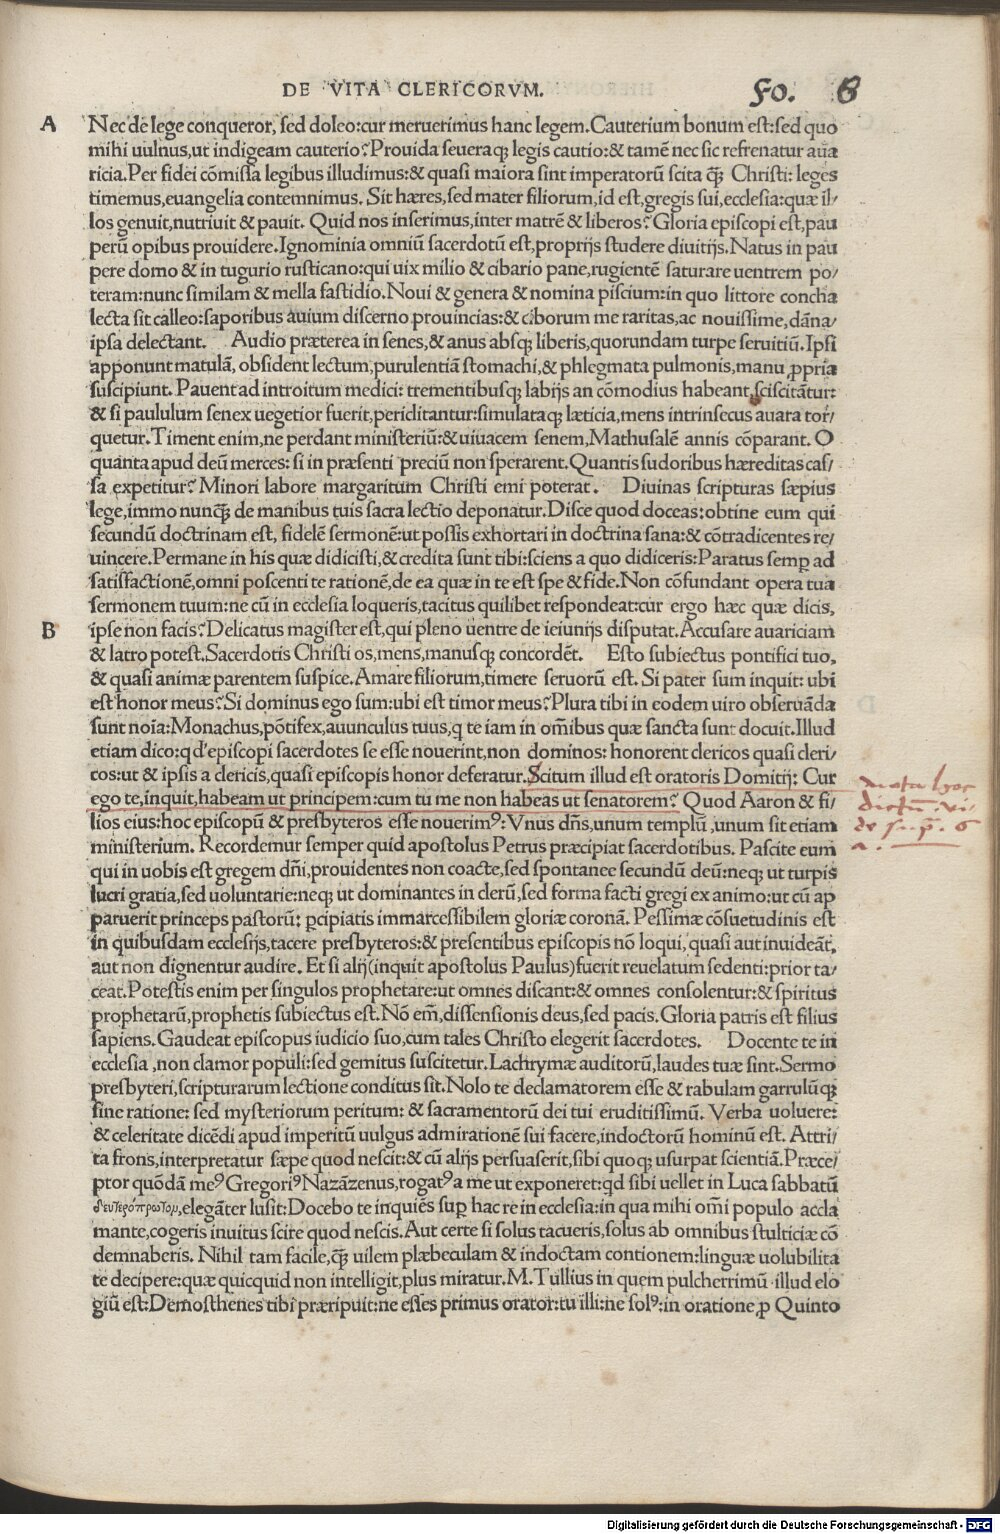 DE VITA CLERICORVM. Fo. 8
A Nec de lege conqueror, sed doleo:cur meruerimus hanc legem.Cauterium bonum est:sed quo
mihi uulnus,ut indigeam cauterio?Prouida seueraq; legis cautio:& tamē nec sic refrenatur aua
ricia.Per fidei cōmissa legibus illudimus:& quasi maiora sint imperatorū scita q̄ Christi: leges
timemus,euangelia contemnimus. Sit hæres,sed mater filiorum,id est,gregis sui,ecclesia:quæ il/
los genuit,nutriuit & pauit. Quid nos inserimus,inter matrē & liberos? Gloria episcopi est,pau
perū opibus prouidere.Ignominia omniū sacerdotū est,proprijs studere diuitijs.Natus in pau
pere domo & in tugurio rusticano:qui uix milio & cibario pane,rugientē saturare uentrem po/
teram:nunc similam & mella fastidio.Noui & genera & nomina piscium:in quo littore concha
lecta sit calleo:saporibus auium discerno prouincias:& ciborum me raritas,ac nouissime,dāna/
ipsa delectant. Audio præterea in senes,& anus absq; liberis,quorundam turpe seruitiū.Ipsi
apponunt matulā, obsident lectum,purulentiā stomachi,& phlegmata pulmonis,manu ꝓpria
suscipiunt. Pauent ad introitum medici: trementibusq; labijs an cōmodius habeant,sciscitātur:
& si paululum senex uegetior fuerit,periditantur:simulataq; læticia,mens intrinsecus auara tor/
quetur.Timent enim,ne perdant ministeriū:& uiuacem senem,Mathusalē annis cōparant. O
quanta apud deū merces: si in præsenti preciū non sperarent.Quantis sudoribus hæreditas cas/
sa expetitur? Minori labore margaritum Christi emi poterat. Diuinas scripturas sæpius
lege,immo nunq̄ de manibus tuis sacra lectio deponatur.Disce quod doceas:obtine eum qui
secundū doctrinam est, fidelē sermonē:ut possis exhortari in doctrina sana:& cōtradicentes re/
uincere.Permane in his quæ didicisti,& credita sunt tibi:sciens a quo didiceris:Paratus semꝑ ad
satisfactionē,omni poscenti te rationē,de ea quæ in te est spe & fide.Non cōfundant opera tua
sermonem tuum:ne cū in ecclesia loqueris,tacitus quilibet respondeat:cur ergo hæc quæ dicis,
B ipse non facis?Delicatus magister est,qui pleno uentre de ieiunijs disputat.Accusare auariciam
& latro potest.Sacerdotis Christi os,mens,manusq; concordēt. Esto subiectus pontifici tuo,
& quasi animæ parentem suspice.Amare filiorum,timere seruorū est. Si pater sum inquit: ubi
est honor meus?Si dominus ego sum:ubi est timor meus?Plura tibi in eodem uiro obseruāda
sunt noīa:Monachus,pōtifex,auunculus tuus,q te iam in oībus quæ sancta sunt docuit.Illud
etiam dico:qd' episcopi sacerdotes se esse nouerint,non dominos: honorent clericos quasi cleri/
cos:ut & ipsis a clericis,quasi episcopis honor deferatur.Scitum illud est oratoris Domitij: Cur
ego te,inquit,habeam ut principem:cum tu me non habeas ut senatorem? Quod Aaron & fi/
nota hoc
dictū. vi-
de sup. 6
a.
lios eius:hoc episcopū & presbyteros esse nouerimꝰ:Vnus dn̄s,unum templū,unum sit etiam
ministerium. Recordemur semper quid apostolus Petrus præcipiat sacerdotibus. Pascite eum
qui in uobis est gregem dn̄i,prouidentes non coacte,sed spontanee secundū deū:neq; ut turpis
lucri gratia,sed uoluntarie:neq; ut dominantes in clerū,sed forma facti gregi ex animo:ut cū ap
paruerit princeps pastorū: ꝑcipiatis immarcessibilem gloriæ coronā. Pessimæ cōsuetudinis est
in quibusdam ecclesijs,tacere presbyteros:& presentibus episcopis nō loqui,quasi aut inuideāt,
aut non dignentur audire. Et si alij(inquit apostolus Paulus)fuerit reuelatum sedenti:prior ta/
ceat.Potestis enim per singulos prophetare:ut omnes discant:& omnes consolentur:& spiritus
prophetarū,prophetis subiectus est.Nō em̄,dissensionis deus,sed pacis.Gloria patris est filius
sapiens.Gaudeat episcopus iudicio suo,cum tales Christo elegerit sacerdotes. Docente te in
ecclesia,non clamor populi:sed gemitus suscitetur.Lachrymæ auditorū,laudes tuæ sint.Sermo
presbyteri,scripturarum lectione conditus sit.Nolo te declamatorem esse & rabulam garrulūq;
sine ratione: sed mysteriorum peritum: & sacramentorū dei tui eruditissimū. Verba uoluere:
& celeritate dicēdi apud imperitū uulgus admirationē sui facere,indoctorū hominū est. Attri/
ta frons,interpretatur sæpe quod nescit:& cū alijs persuaserit,sibi quoq; usurpat scientiā.Præce/
ptor quōdā meꝰ Gregoriꝰ Nazāzenus,rogatꝰ a me ut exponeret:qd sibi uellet in Luca sabbatū
δευτερόπρωτον,elegāter lusit:Docebo te inquiēs suꝑ hac re in ecclesia:in qua mihi oī populo accla
mante,cogeris inuitus scire quod nescis.Aut certe si solus tacueris,solus ab omnibus stulticiæ cō
demnaberis. Nihil tam facile,q̄ uilem plæbeculam & indoctam contionem:linguæ uolubilita
te decipere:quæ quicquid non intelligit,plus miratur.M.Tullius in quem pulcherrimū illud elo
giū est:Demosthenes tibi præripuit:ne esses primus orator:tu illi:ne solꝰ:in oratione ꝓ Quinto
Digitalisierung gefördert durch die Deutsche Forschungsgemeinschaft - DFG